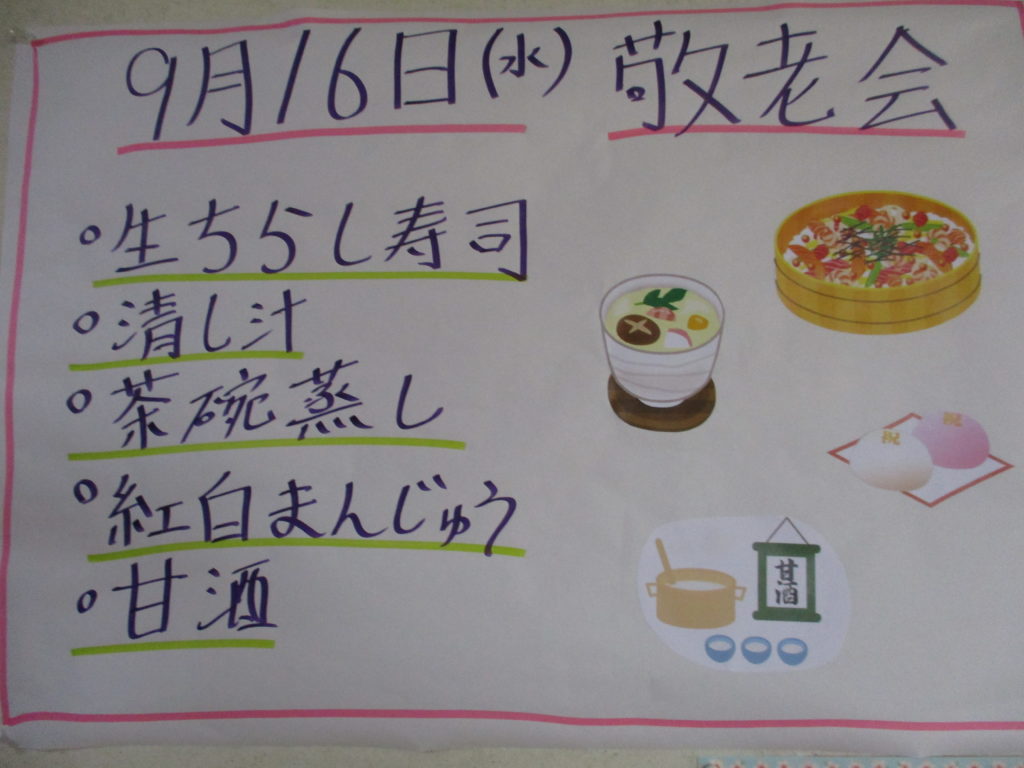 9月16日(水) 敬老会
・生ちらし寿司
・清し汁
・茶碗蒸し
・紅白まんじゅう
・甘酒
祝
祝
甘酒